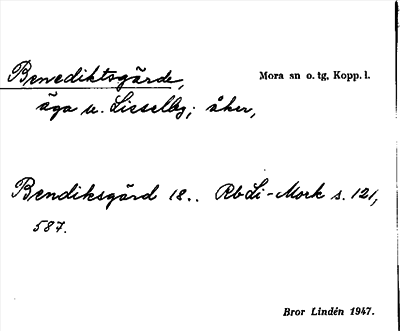 Benediktsgärde,
Mora sn o. tg, Kopp. l.
äga u. Lisselby; åker,
Bendiksgärd 18.. Rb Li-Mork s. 121,
587.
Bror Lindén 1947.